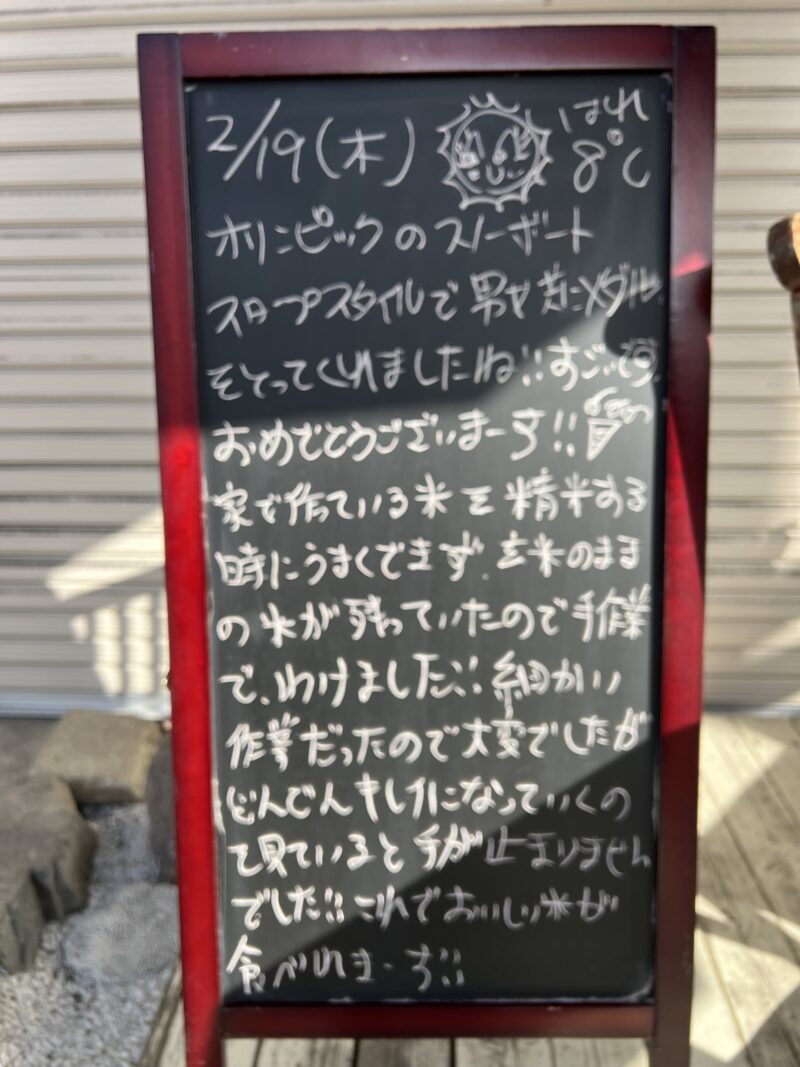 2/19(木) はれ 8℃
オリンピックのスノーボート
スロープスタイルで男女共にメダル
をとってくれましたね!!すごいです
おめでとうございまーす!!
家で作っている米を精米する
時にうまくできず、玄米のまま
の米が残っていたので手作業
で、わけました!!細かい
作業だったので大変でしたが
どんどんキレイになっていくの
て見ていると手が止まりません
でした!!これでおいしい米が
食べれまーす!!